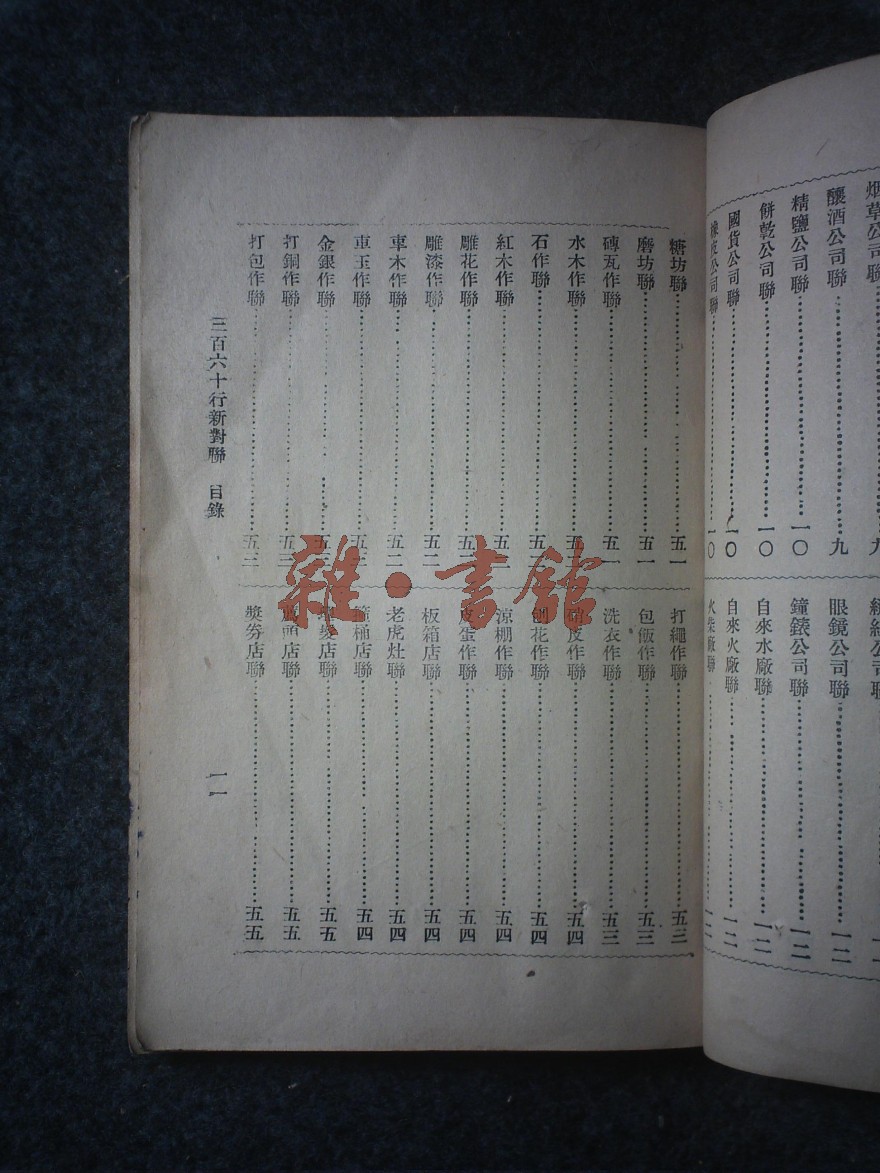 烟草公司聯 九
釀酒公司聯 九
精鹽公司聯 一〇
餅乾公司聯 一〇
國貨公司聯 一〇
橡皮公司聯 一〇
眼鏡公司聯 一二
鐘錶公司聯 一二
自來水廠聯 一二
自來火廠聯 一二
火柴廠聯 一二
糖坊聯 五一
磨坊聯 五一
磚瓦作聯 五一
水木作聯
石作聯
紅木作聯
雕花作聯
雕漆作聯 五二
車木作聯 五二
車玉作聯
金銀作聯
打銅作聯
打包作聯
打繩作聯 五三
包飯作聯 五三
洗衣作聯 五三
硝皮作聯 五四
刨花作聯 五四
涼棚作聯 五四
皮蛋作聯 五四
板箱店聯 五四
老虎灶聯 五四
箍桶店聯 五四
店聯 五五
店聯 五五
獎券店聯 五五
三百六十行新對聯 目錄
一一
雜·書館